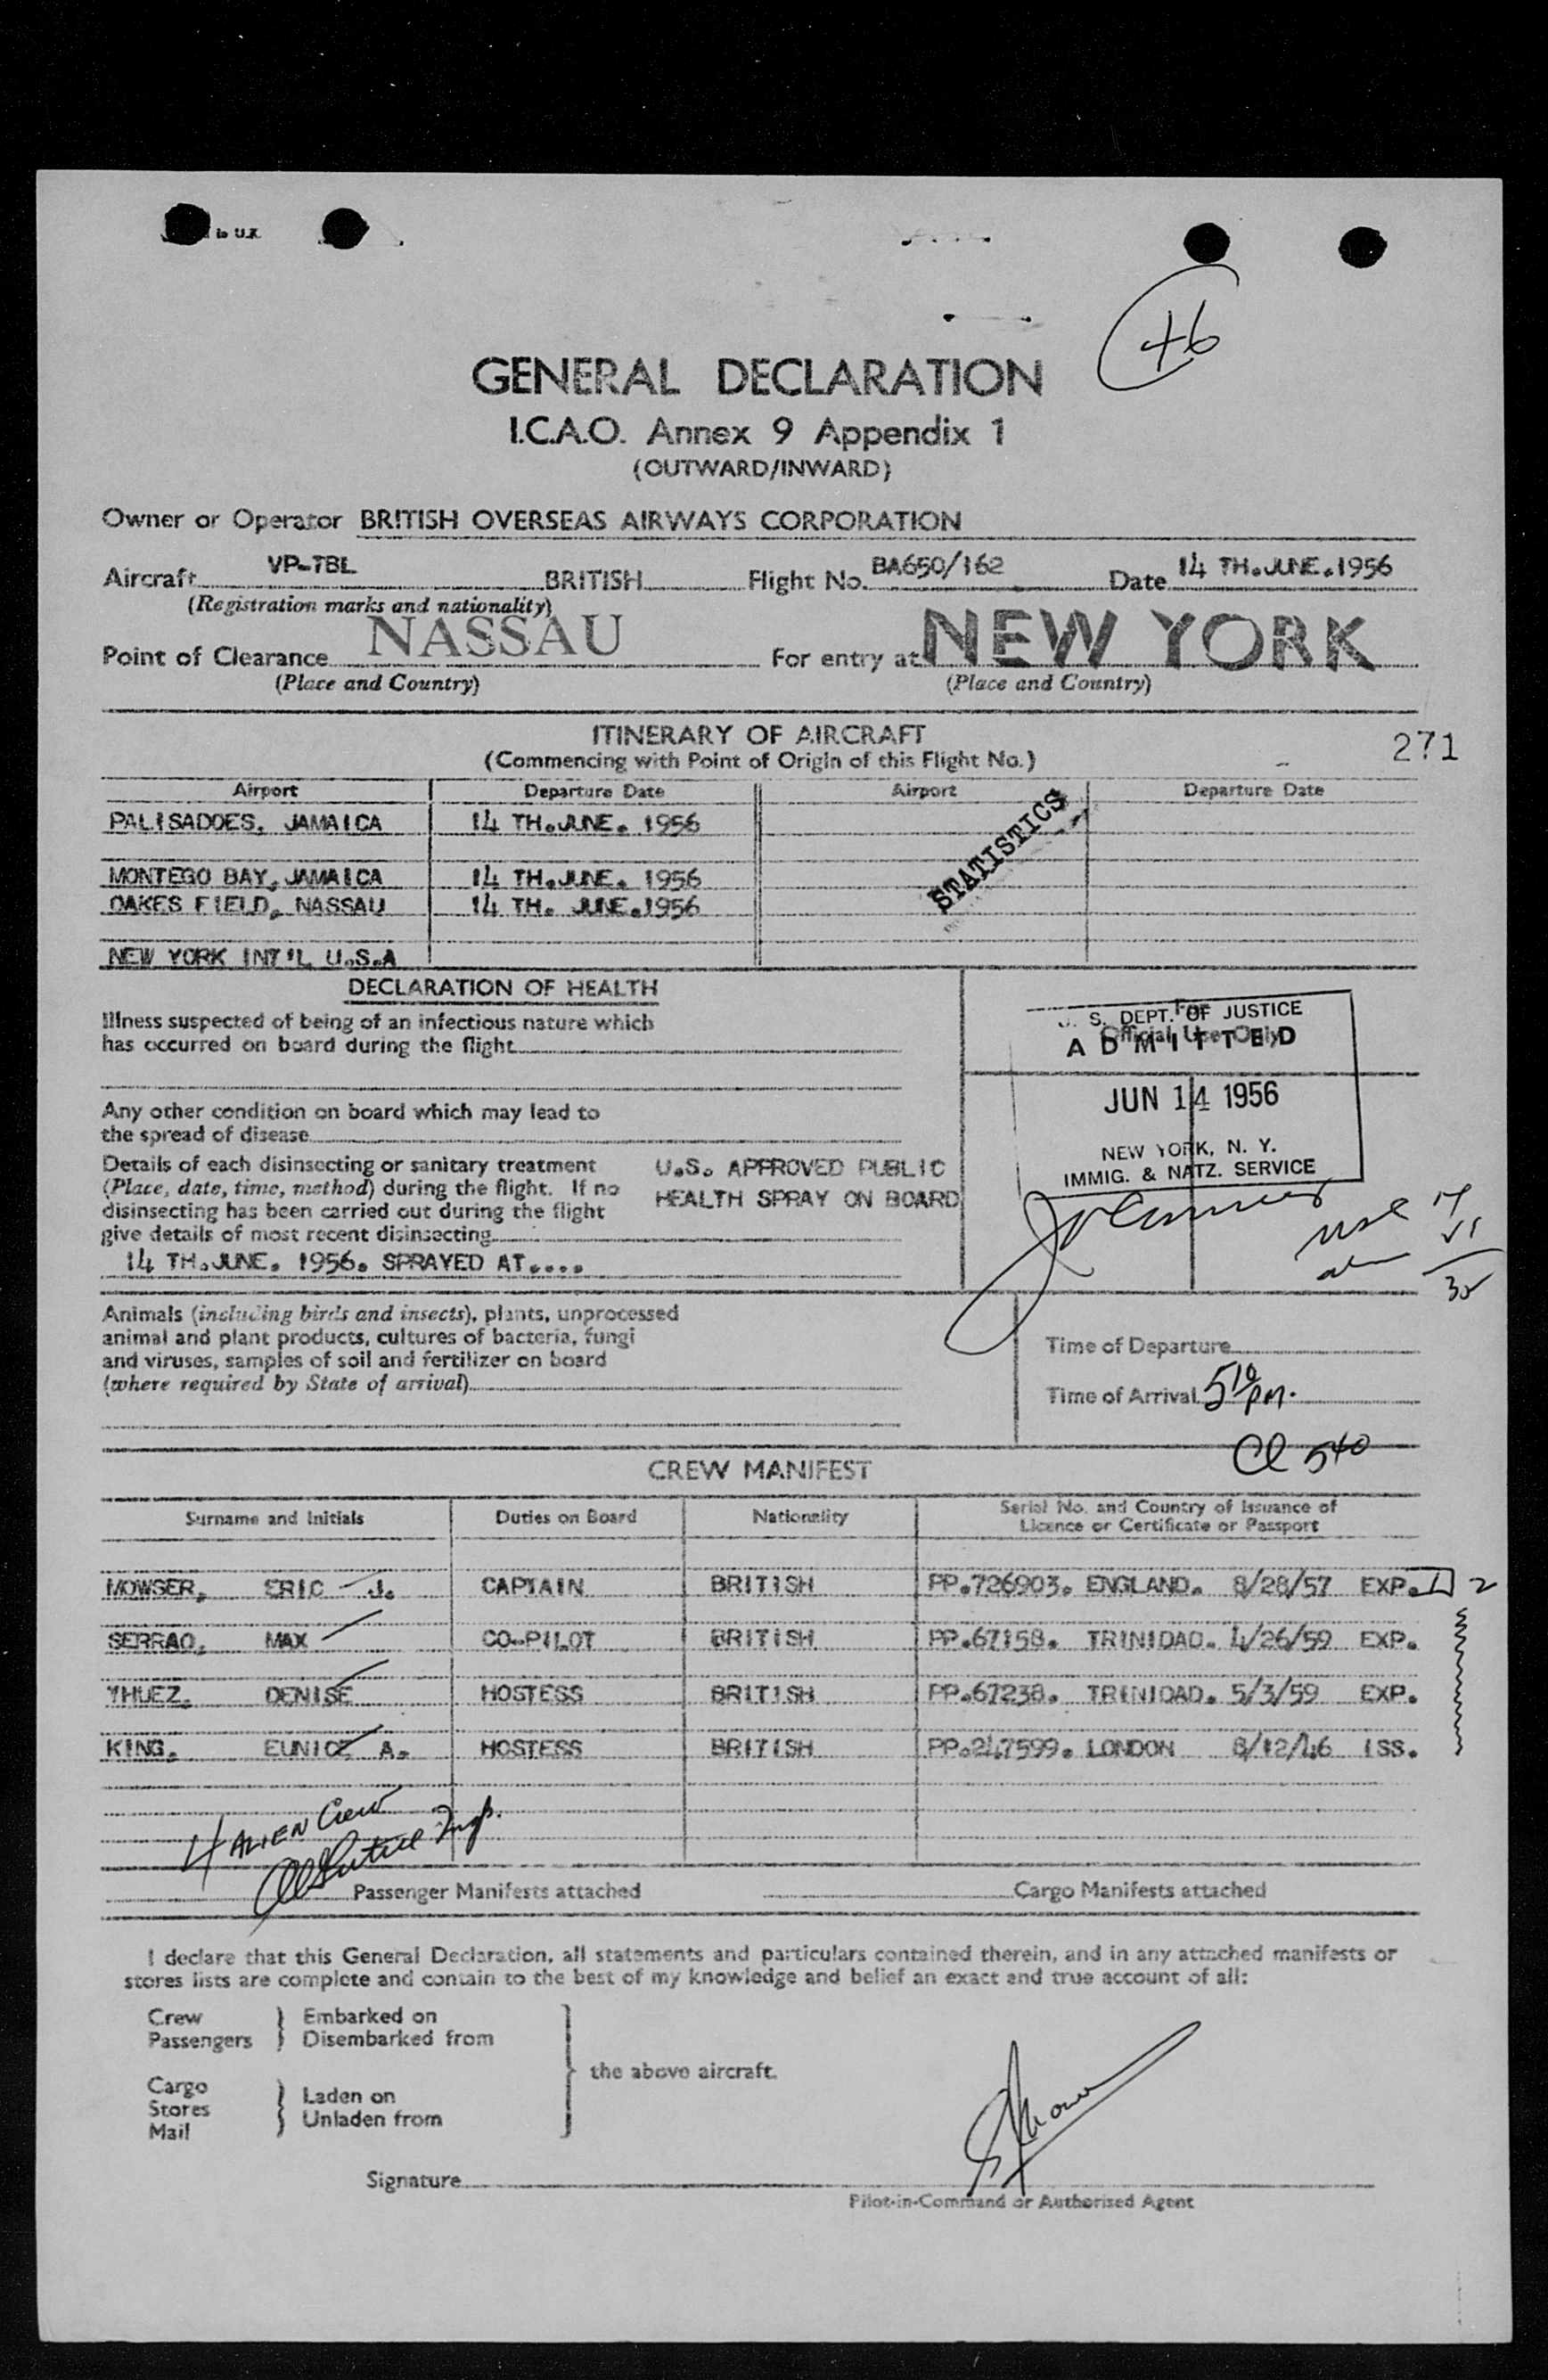 to U.K.
+6
GENERAL DECLARATION
I.C.A.O. Annex 9 Appendix 1
(OUTWARD/INWARD)
Owner or Operator BRITISH OVERSEAS AIRWAYS CORPORATION
Aircraft VP-TBL BRITISH Flight No. BA650/162 Date 14 TH.JUNE.1956
(Registration marks and nationality)
Point of Clearance NASSAU For entry at NEW YORK
(Place and Country) (Place and Country)
ITINERARY OF AIRCRAFT
(Commencing with Point of Origin of this Flight No.)
271
Airport Departure Date Airport Departure Date
PALISADOES, JAMAICA 14 TH.JUNE. 1956
STATISTICS
MONTEGO BAY, JAMAICA 14 TH.JUNE. 1956
OAKES FIELD, NASSAU 14 TH. JUNE.1956
NEW YORK INT'L U.S.A
DECLARATION OF HEALTH
Illness suspected of being of an infectious nature which
has occurred on board during the flight
For
Official Use Only
U. S. DEPT. OF JUSTICE
ADMITTED
JUN 14 1956
NEW YORK, N. Y.
IMMIG. & NATZ. SERVICE
Any other condition on board which may lead to
the spread of disease
Details of each disinsecting or sanitary treatment U.S. APPROVED PUBLIC
(Place, date, time, method) during the flight. If no HEALTH SPRAY ON BOARD
disinsecting has been carried out during the flight
give details of most recent disinsecting
14 TH.JUNE. 1956. SPRAYED AT....
Animals (including birds and insects), plants, unprocessed
animal and plant products, cultures of bacteria, fungi
and viruses, samples of soil and fertilizer on board
(where required by State of arrival)
Time of Departure
Time of Arrival 5 10 pm.
Cl 540
CREW MANIFEST
Surname and Initials Duties on Board Nationality Serial No. and Country of Issuance of
Licence or Certificate or Passport
MOWSER, ERIC J. CAPTAIN BRITISH PP.726903. ENGLAND. 8/28/57 EXP. 2
SERRAO, MAX CO-PILOT BRITISH PP.67158. TRINIDAD. 4/26/59 EXP.
YHUEZ, DENISE HOSTESS BRITISH PP.67238. TRINIDAD. 5/3/59 EXP.
KING, EUNICE A. HOSTESS BRITISH PP.247599. LONDON 8/12/46 ISS.
4 ALIEN Crew
Passenger Manifests attached Cargo Manifests attached
I declare that this General Declaration, all statements and particulars contained therein, and in any attached manifests or
stores lists are complete and contain to the best of my knowledge and belief an exact and true account of all:
Crew Embarked on
Passengers Disembarked from
the above aircraft.
Cargo
Stores Laden on
Mail Unladen from
Signature
Pilot-in-Command or Authorised Agent